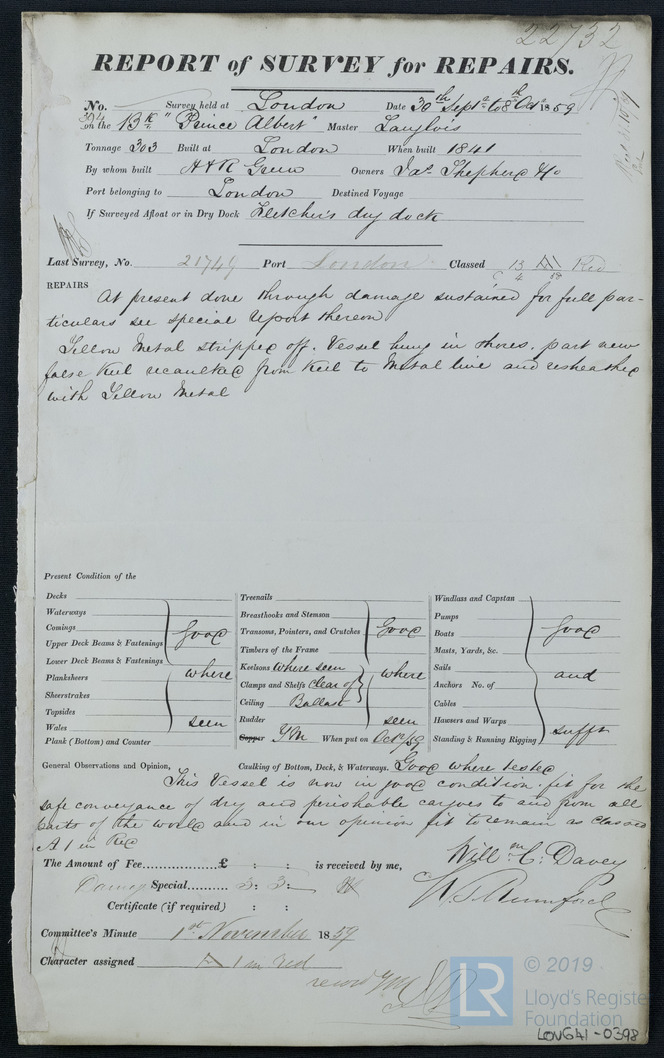 22732
REPORT of SURVEY for REPAIRS.
No. 394 Survey held at London Date 30th Septr to 8th Oct 1859
on the Bk "Prince Albert" Master Langlois
Tonnage 303 Built at London When built 1841
By whom built R & H Green Owners Jas Shepherd & Co
Port belonging to London Destined Voyage
If Surveyed Afloat or in Dry Dock Fletcher's dry dock
Last Survey, No. 21749 Port London Classed Red
REPAIRS At present done through damage sustained for full par-
ticulars see special report thereon
Yellow Metal stripped off. Vessel hung in shores. part new
false keel recaulked from keel to Metal line and resheathed
with Yellow Metal
Present Condition of the
Decks
Waterways
Comings
Upper Deck Beams & Fastenings Good
Lower Deck Beams & Fastenings
Planksheers where
Sheerstrakes
Topsides
Wales seen
Plank (Bottom) and Counter
Treenails
Breasthooks and Stemson
Transoms, Pointers, and Crutches Good
Timbers of the Frame
Keelsons where seen where
Clamps and Shelfs clear of
Ceiling Ballast
Rudder seen
Copper YM When put on Octr/59
Windlass and Capstan
Pumps
Boats Good
Masts, Yards, &c.
Sails and
Anchors No. of
Cables
Hawsers and Warps
Standing & Running Rigging sufft
General Observations and Opinion, Caulking of Bottom, Deck, & Waterways. Good where tested
This Vessel is now in good condition. fit for the
safe conveyance of dry and perishable cargoes to and from all
parts of the world and in our opinion fit to remain as classed
A 1 in Red
The Amount of Fee £ : : is received by me,
Damage Special 3 : 3 :
Certificate (if required) : :
Willm C. Davey
Committee's Minute 1st November 1859
Character assigned A 1 in red
record YM
LR © 2019
Lloyd's Register
Foundation
LON641-0398